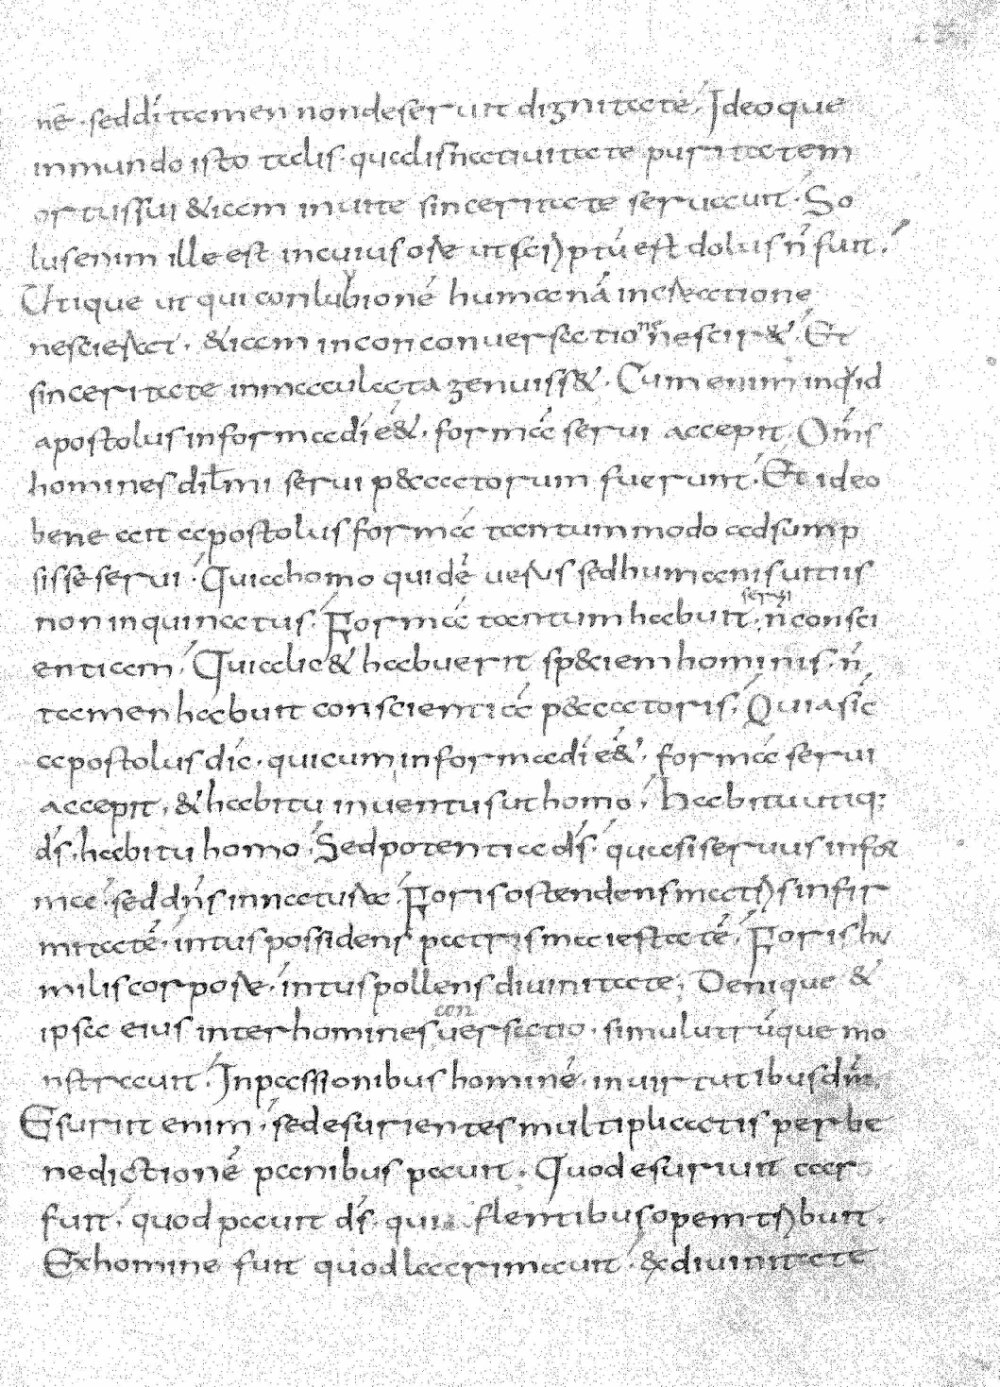 nē. sed dī tamen non deseruit dignitatē. Ideoque
in mundo isto talis. qualis nativitate puritatem
ortus sui etiam in vite sinceritate servavit. So
lus enim ille est in cuius ore ut scriptū est dolus n̄ fuit.
Utique ut qui conlubionē humanā in creatione
nescierat. etiam in con conversationē nesciret. Et
sinceritate inmaculata genuisset. Cum enim inquid
apostolus in forma dī eēt. formā servi accepit. Om̄s
homines dil̄mi servi peccatorum fuerunt. Et ideo
bene ait apostolus formā tantum modo adsump
sisse servi. Quia homo quidē verus sed humanis vitiis
non inquinatus. Formā tantum habuit servi. n̄ consci
entiam. Qui a licet habuerit speciem hominis. n̄
tamen habuit conscientiā peccatoris. Quia sic̄
apostolus dic̄. qui cum in forma dī eēt. formā servi
accepit. et habitu inventus ut homo. Habitu utiq;
ds̄. habitu homo. Sed potentia ds̄. quasi servus in for
ma. sed dn̄s in natura. Foris ostendens matris infir
mitatē. intus possidens patris maiestatē. Foris hu
milis corpore. intus pollens divinitate. Denique et
ipsa eius inter homines conversatio. simul utrūque mo
nstravit. In passionibus hominē. in virtutibus dm̄.
Esurit enim. sed esurientes multiplicatis per be
nedictionē panibus pavit. Quod esuriuit car
fuit. quod pavit ds̄. qui flentibus opem tribuit.
Ex homine fuit quod lacrimavit. ex divinitate